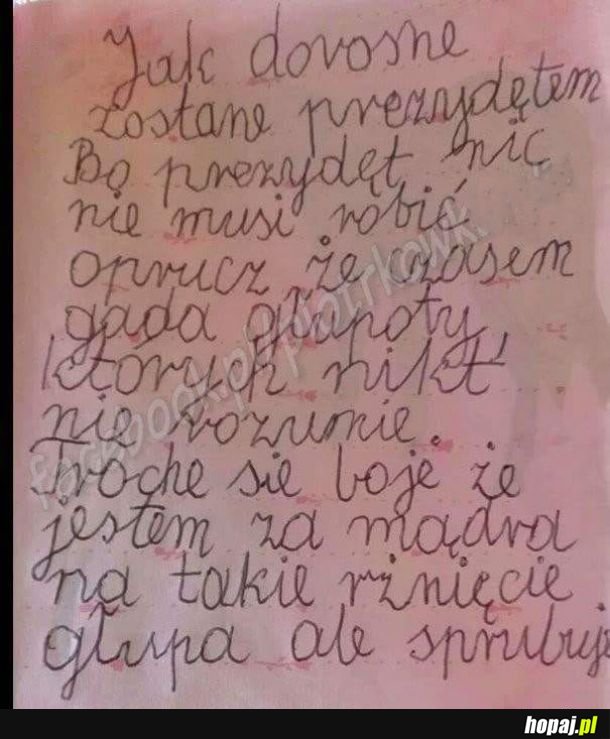 Jak dorosne
zostane prezydętem
Bo prezydęt nic
nie musi robić
oprucz że czasem
gada głupoty,
których nikt
nie rozumie.
Troche sie boje że
jestem za mądra
na takie rżnięcie
głupa ale sprubuje.
facebook.pl/piotrkowk.
hopaj.pl